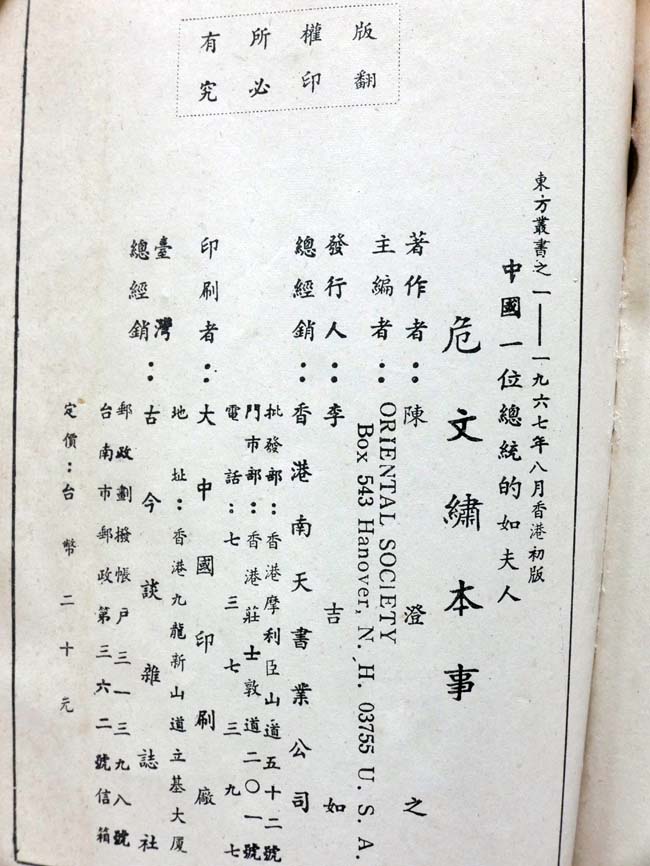 版權所有
翻印必究
東方叢書之一——一九六七年八月香港初版
中國一位總統的如夫人
危文繡本事
著作者：陳澄之
主編者：ORIENTAL SOCIETY
Box 543 Hanover, N. H. 03755 U. S. A.
發行人：李吉如
總經銷：香港南天書業公司
批發部：香港摩利臣山道五十二號
門市部：香港莊士敦道二〇一號
電話：七三七三九七
印刷者：大中國印刷廠
地址：香港九龍新山道立基大厦
臺灣總經銷：古今談雜誌社
郵政劃撥帳戶三一三九八號
台南市郵政第三六二號信箱
定價：台幣二十元